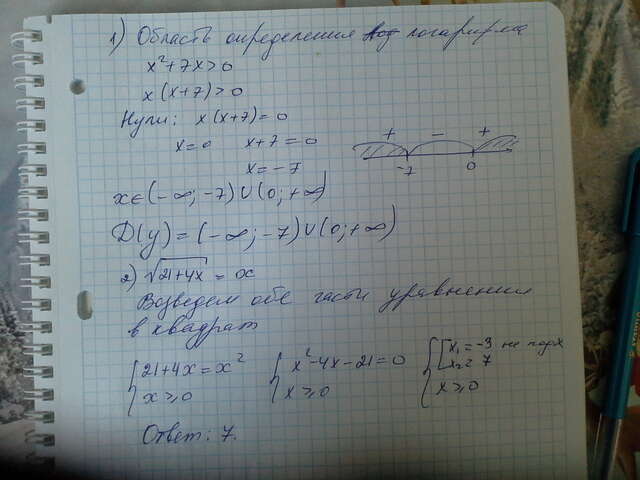 1) Область определения логарифма
x²+7x>0
x(x+7)>0
Нули: x(x+7)=0
x=0 x+7=0
x=-7
+ − +
-7 0
x∈(-∞;-7)∪(0;+∞)
D(y)=(-∞;-7)∪(0;+∞)
2) √21+4x = x
Возведем обе части уравнения
в квадрат
{21+4x=x² {x²-4x-21=0 {[x₁=-3 не подх
x₂=7
x≥0 x≥0 x≥0
Ответ: 7.